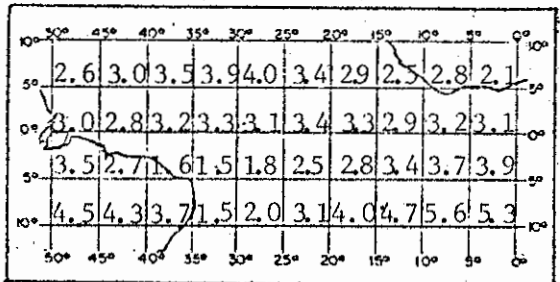 50° 45° 40° 35° 30° 25° 20° 15° 10° 5° 0°
10° 10°
2.6 3.0 3.5 3.9 4.0 3.4 2.9 2.5 2.8 2.1
5° 5°
3.0 2.8 3.2 3.3 3.1 3.4 3.3 2.9 3.2 3.1
0° 0°
3.5 2.7 1.6 1.5 1.8 2.5 2.8 3.4 3.7 3.9
5° 5°
4.5 4.3 3.7 1.5 2.0 3.1 4.0 4.7 5.6 5.3
10° 10°
50° 45° 40° 35° 30° 25° 20° 15° 10° 5° 0°